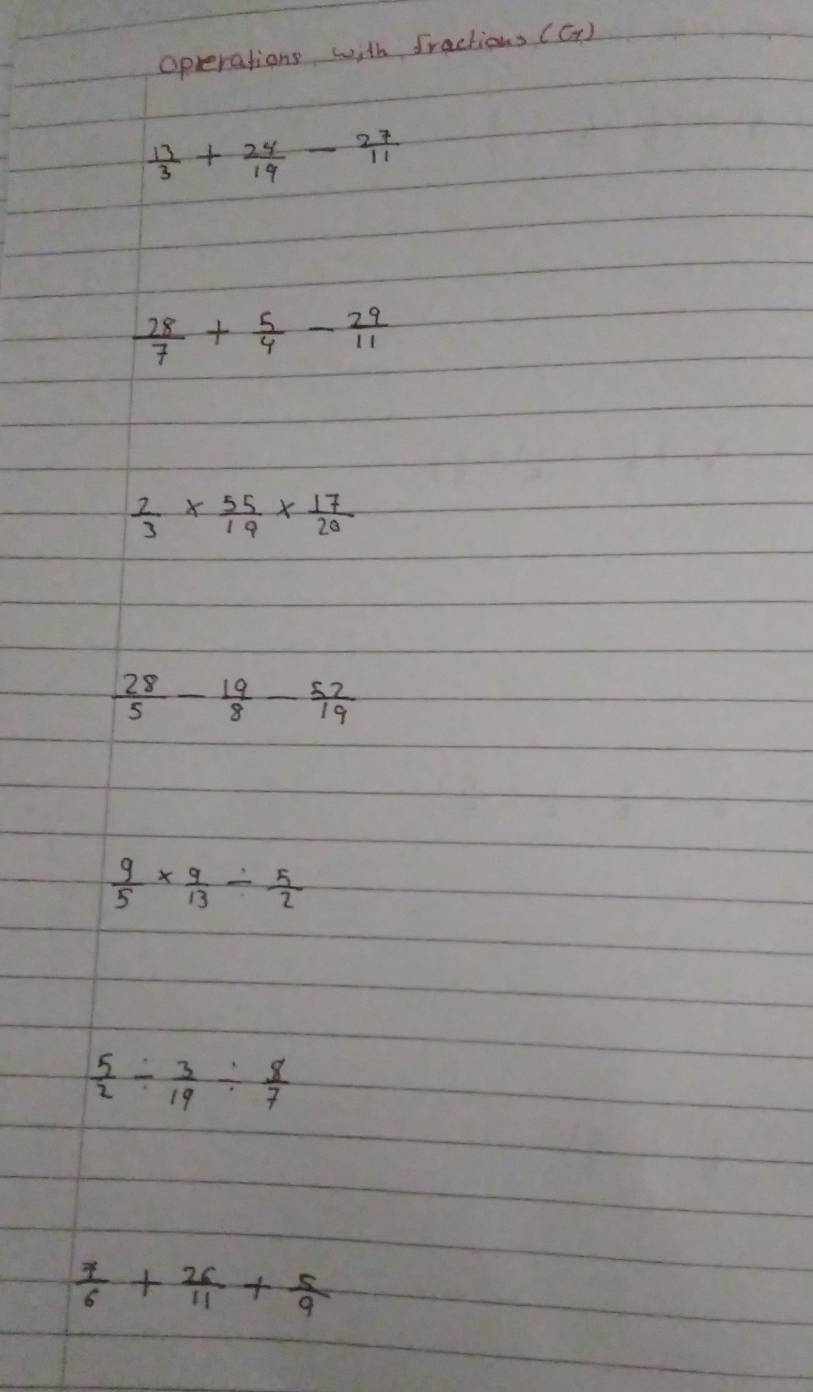 Operations with fractions (G)
13/3 + 24/19 - 27/11
28/7 + 5/4 - 29/11
2/3 × 55/19 × 17/20
28/5 - 19/8 - 52/19
9/5 × 9/13 ÷ 5/2
5/2 ÷ 3/19 ÷ 8/7
7/6 + 26/11 + 5/9